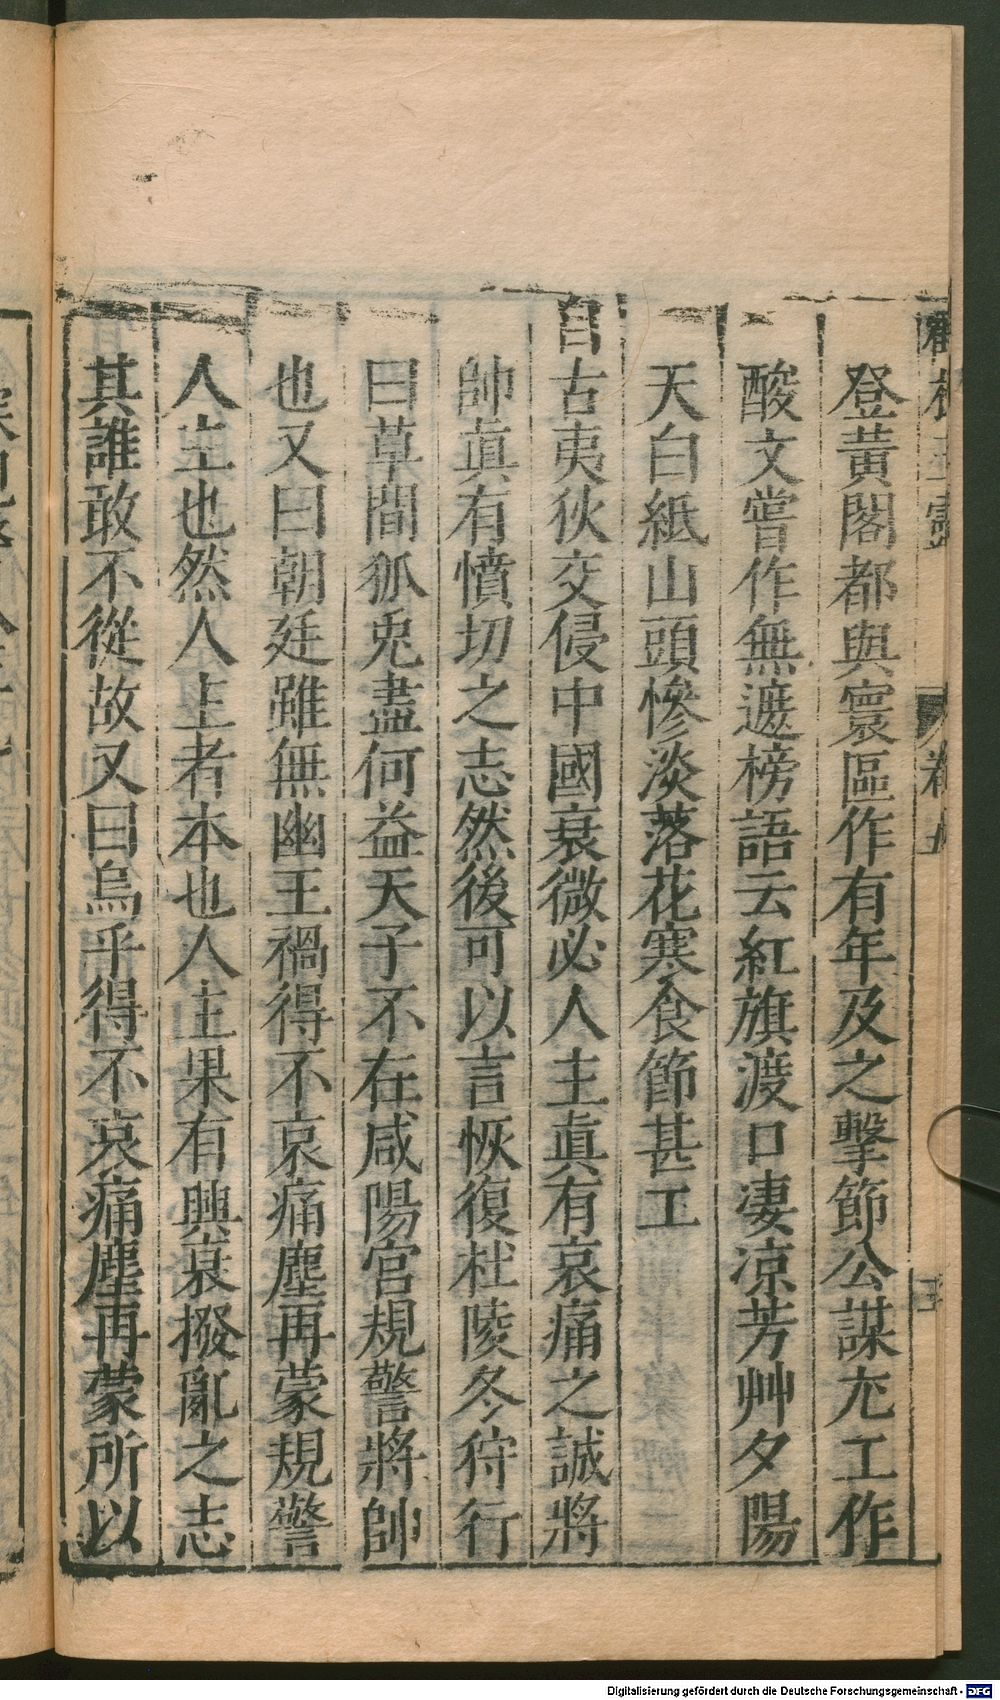 登黃閣都與寰區作有年及之擊節公謀尤工作
酸文嘗作無遮榜語云紅旗渡口凄凉芳艸夕陽
天白紙山頭慘淡落花寒食節甚工
自古夷狄交侵中國衰微必人主眞有哀痛之誠將
帥眞有憤切之志然後可以言恢復杜陵冬狩行
曰草間狐兎盡何益天子不在咸陽宮規警將帥
也又曰朝廷雖無幽王禍得不哀痛塵再蒙規警
人主也然人主者本也人主果有興衰撥亂之志
其誰敢不從故又曰烏乎得不哀痛塵再蒙所以
卷五
Digitalisierung gefördert durch die Deutsche Forschungsgemeinschaft - DFG